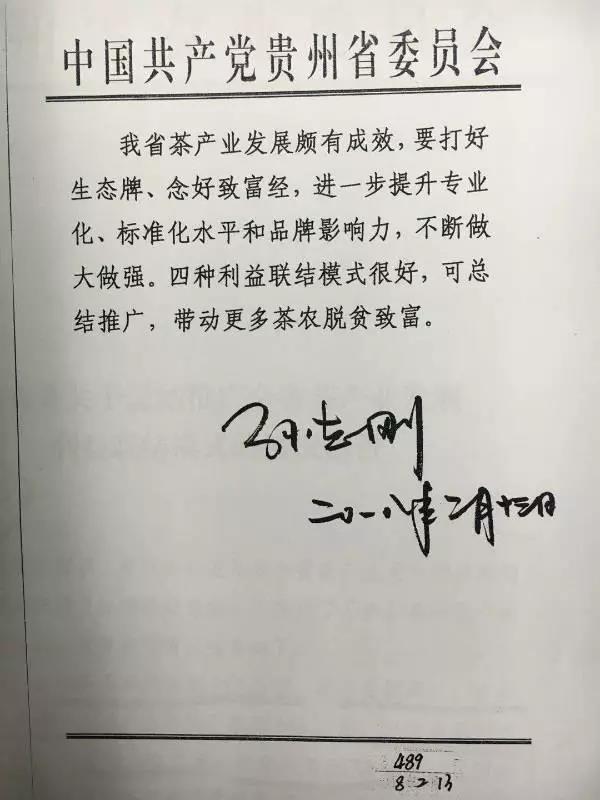 中国共产党贵州省委员会
我省茶产业发展颇有成效，要打好
生态牌、念好致富经，进一步提升专业
化、标准化水平和品牌影响力，不断做
大做强。四种利益联结模式很好，可总
结推广，带动更多茶农脱贫致富。
孙志刚
二〇一八年二月十三日
489
8 2 13